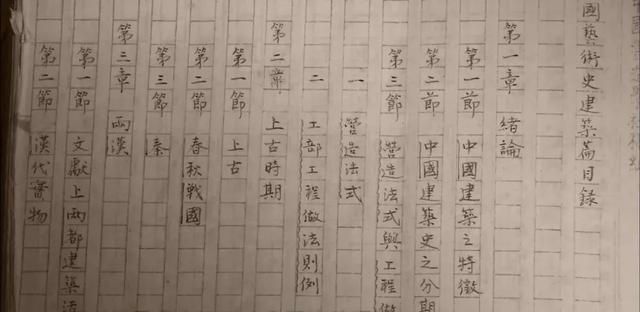 國藝術史建築篇目錄
第一章 緒論
第一節 中國建築之特徵
第二節 中國建築史之分期
第三節 營造法式與工程做
一 營造法式
二 工部工程做法則例
第二章 上古時期
第一節 上古
第二節 春秋戰國
第三節 秦
第三章 兩漢
第一節 文獻上兩都建築活
第二節 漢代實物